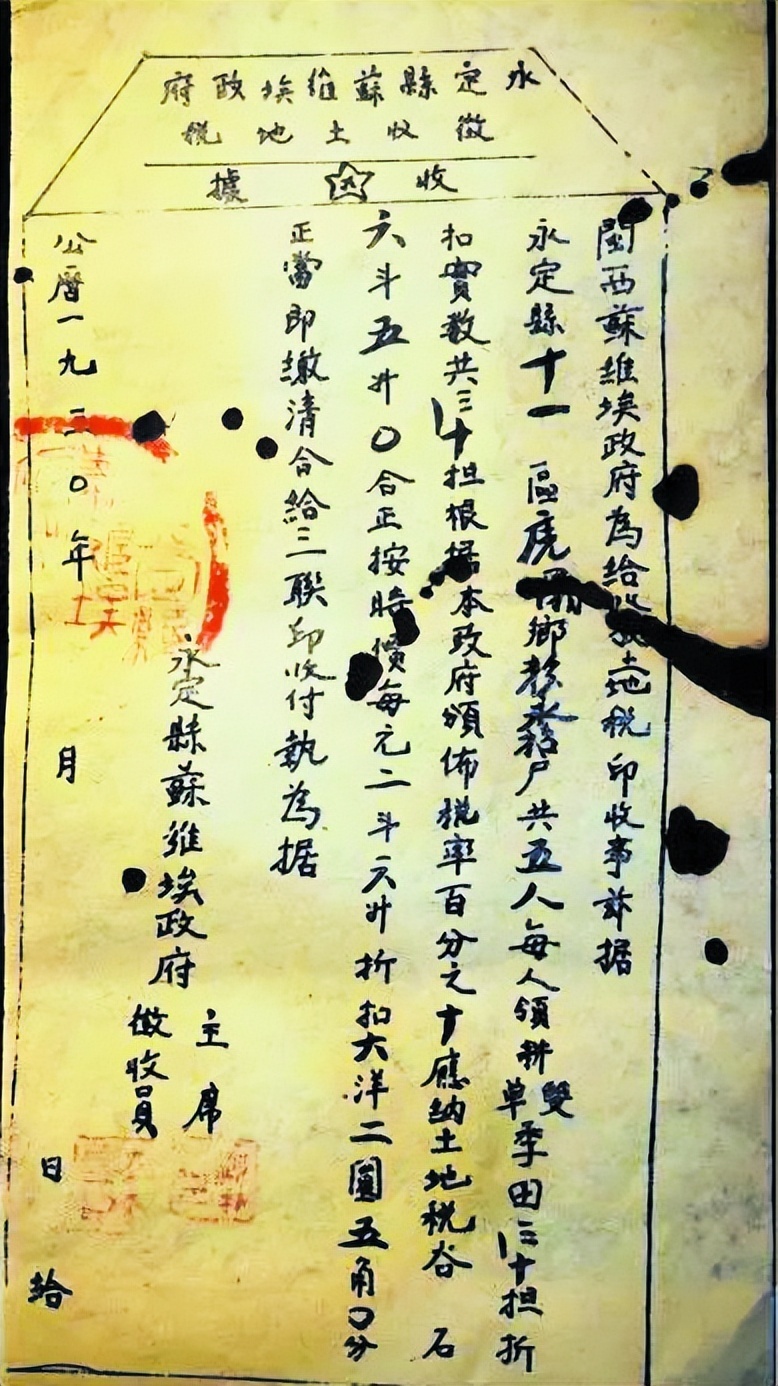 永定縣蘇維埃政府
徵收土地稅
收據
閩西蘇維埃政府為給收土地税印收事兹据
永定縣十一區虎鄉户共五人每人領耕雙單季田三十担折
扣實数共三十担根据本政府頒佈税率百分之十應納土地税谷 石
六斗五升〇合正按時價每元二斗六升折扣大洋二圓五角〇分
正當即繳清合給三聯印收付執為据
永定縣蘇維埃政府 主席
徵收員
公曆一九三〇年 月 日 給